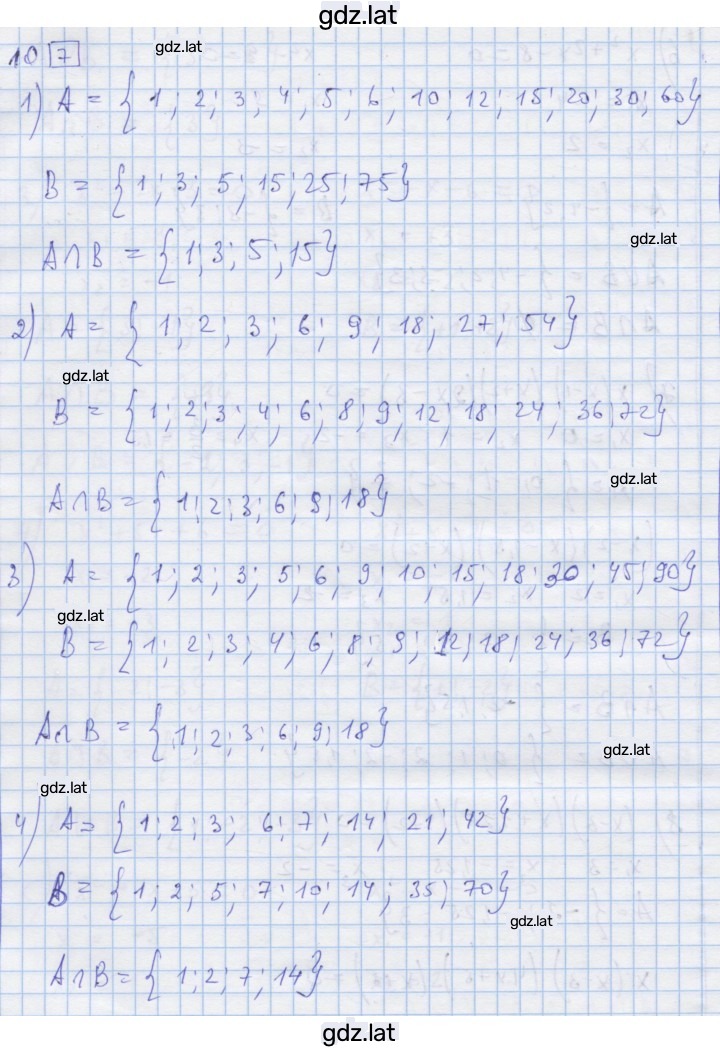 gdz.lat
10 7
gdz.lat
1) A = { 1 ; 2 ; 3 ; 4 ; 5 ; 6 ; 10 ; 12 ; 15 ; 20 ; 30 ; 60 }
B = { 1 ; 3 ; 5 ; 15 ; 25 ; 75 }
gdz.lat
A ∩ B = { 1 ; 3 ; 5 ; 15 }
2) A = { 1 ; 2 ; 3 ; 6 ; 9 ; 18 ; 27 ; 54 }
gdz.lat
B = { 1 ; 2 ; 3 ; 4 ; 6 ; 8 ; 9 ; 12 ; 18 ; 24 ; 36 ; 72 }
gdz.lat
A ∩ B = { 1 ; 2 ; 3 ; 6 ; 9 ; 18 }
3) A = { 1 ; 2 ; 3 ; 5 ; 6 ; 9 ; 10 ; 15 ; 18 ; 30 ; 45 ; 90 }
gdz.lat
B = { 1 ; 2 ; 3 ; 4 ; 6 ; 8 ; 9 ; 12 ; 18 ; 24 ; 36 ; 72 }
A ∩ B = { 1 ; 2 ; 3 ; 6 ; 9 ; 18 }
gdz.lat
gdz.lat
4) A = { 1 ; 2 ; 3 ; 6 ; 7 ; 14 ; 21 ; 42 }
B = { 1 ; 2 ; 5 ; 7 ; 10 ; 14 ; 35 ; 70 }
gdz.lat
A ∩ B = { 1 ; 2 ; 7 ; 14 }
gdz.lat